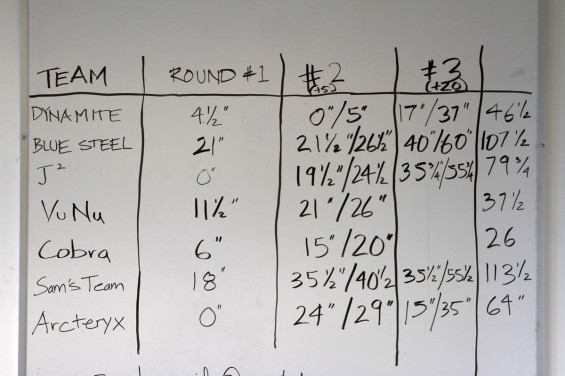 TEAM ROUND #1 #2 (+5) #3 (+20)
DYNAMITE 4½" 0"/5" 17"/37" 46½
BLUE STEEL 21" 21½"/26½" 40"/60" 107½
J² 0" 19½"/24½ 35¾"/55¾ 79¾
VuNu 11½" 21"/26" 37½
Cobra 6" 15"/20" 26
Sam's Team 18" 35½"/40½ 35½"/55½ 113½
Arcteryx 0" 24"/29" 15"/35" 64"